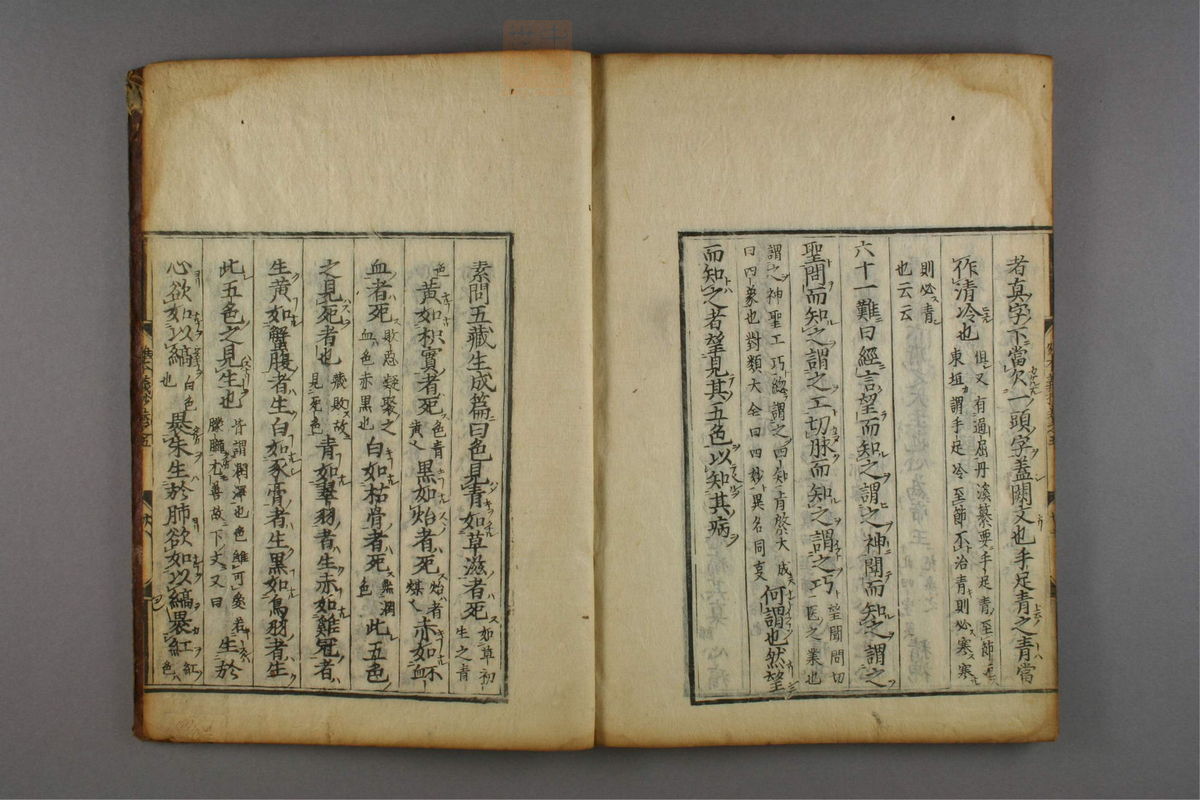 者真字下當欠一頭字蓋闕文也手足青之青當
作清冷也 俱又有過屈丹溪纂要手足青至節
東垣謂手足冷至節不治青則必寒寒
則必青
也云云
六十一難曰經言望而知之謂之神聞而知之謂之
聖問而知之謂之工切脉而知之謂之巧 望聞問切
医之業也
謂之神聖工巧 謂之四知
曰四象也對類大全曰四妙異名同
何謂也然望
而知之者望見其五色以知其病
素問五藏生成篇曰色見青如草滋者死 如草初
生之青
色 黄如枳實者死 色青
黄 黒如炲者死 炲者
煤 赤如衃
血者死 敗惡凝聚之
血色赤黒也 白如枯骨者死 無潤
色 此五色
之見死者也 藏敗故
見死色 青如翠羽者生赤如雞冠者
生黄如蟹腹者生白如豕膏者生黒如烏羽者生
此五色之見生也 皆謂潤澤也色雖可愛若
朦朧尤善故下文又曰 生於
心欲如以縞 白色
也 裹朱生於肺欲如以縞裹紅 紅
色